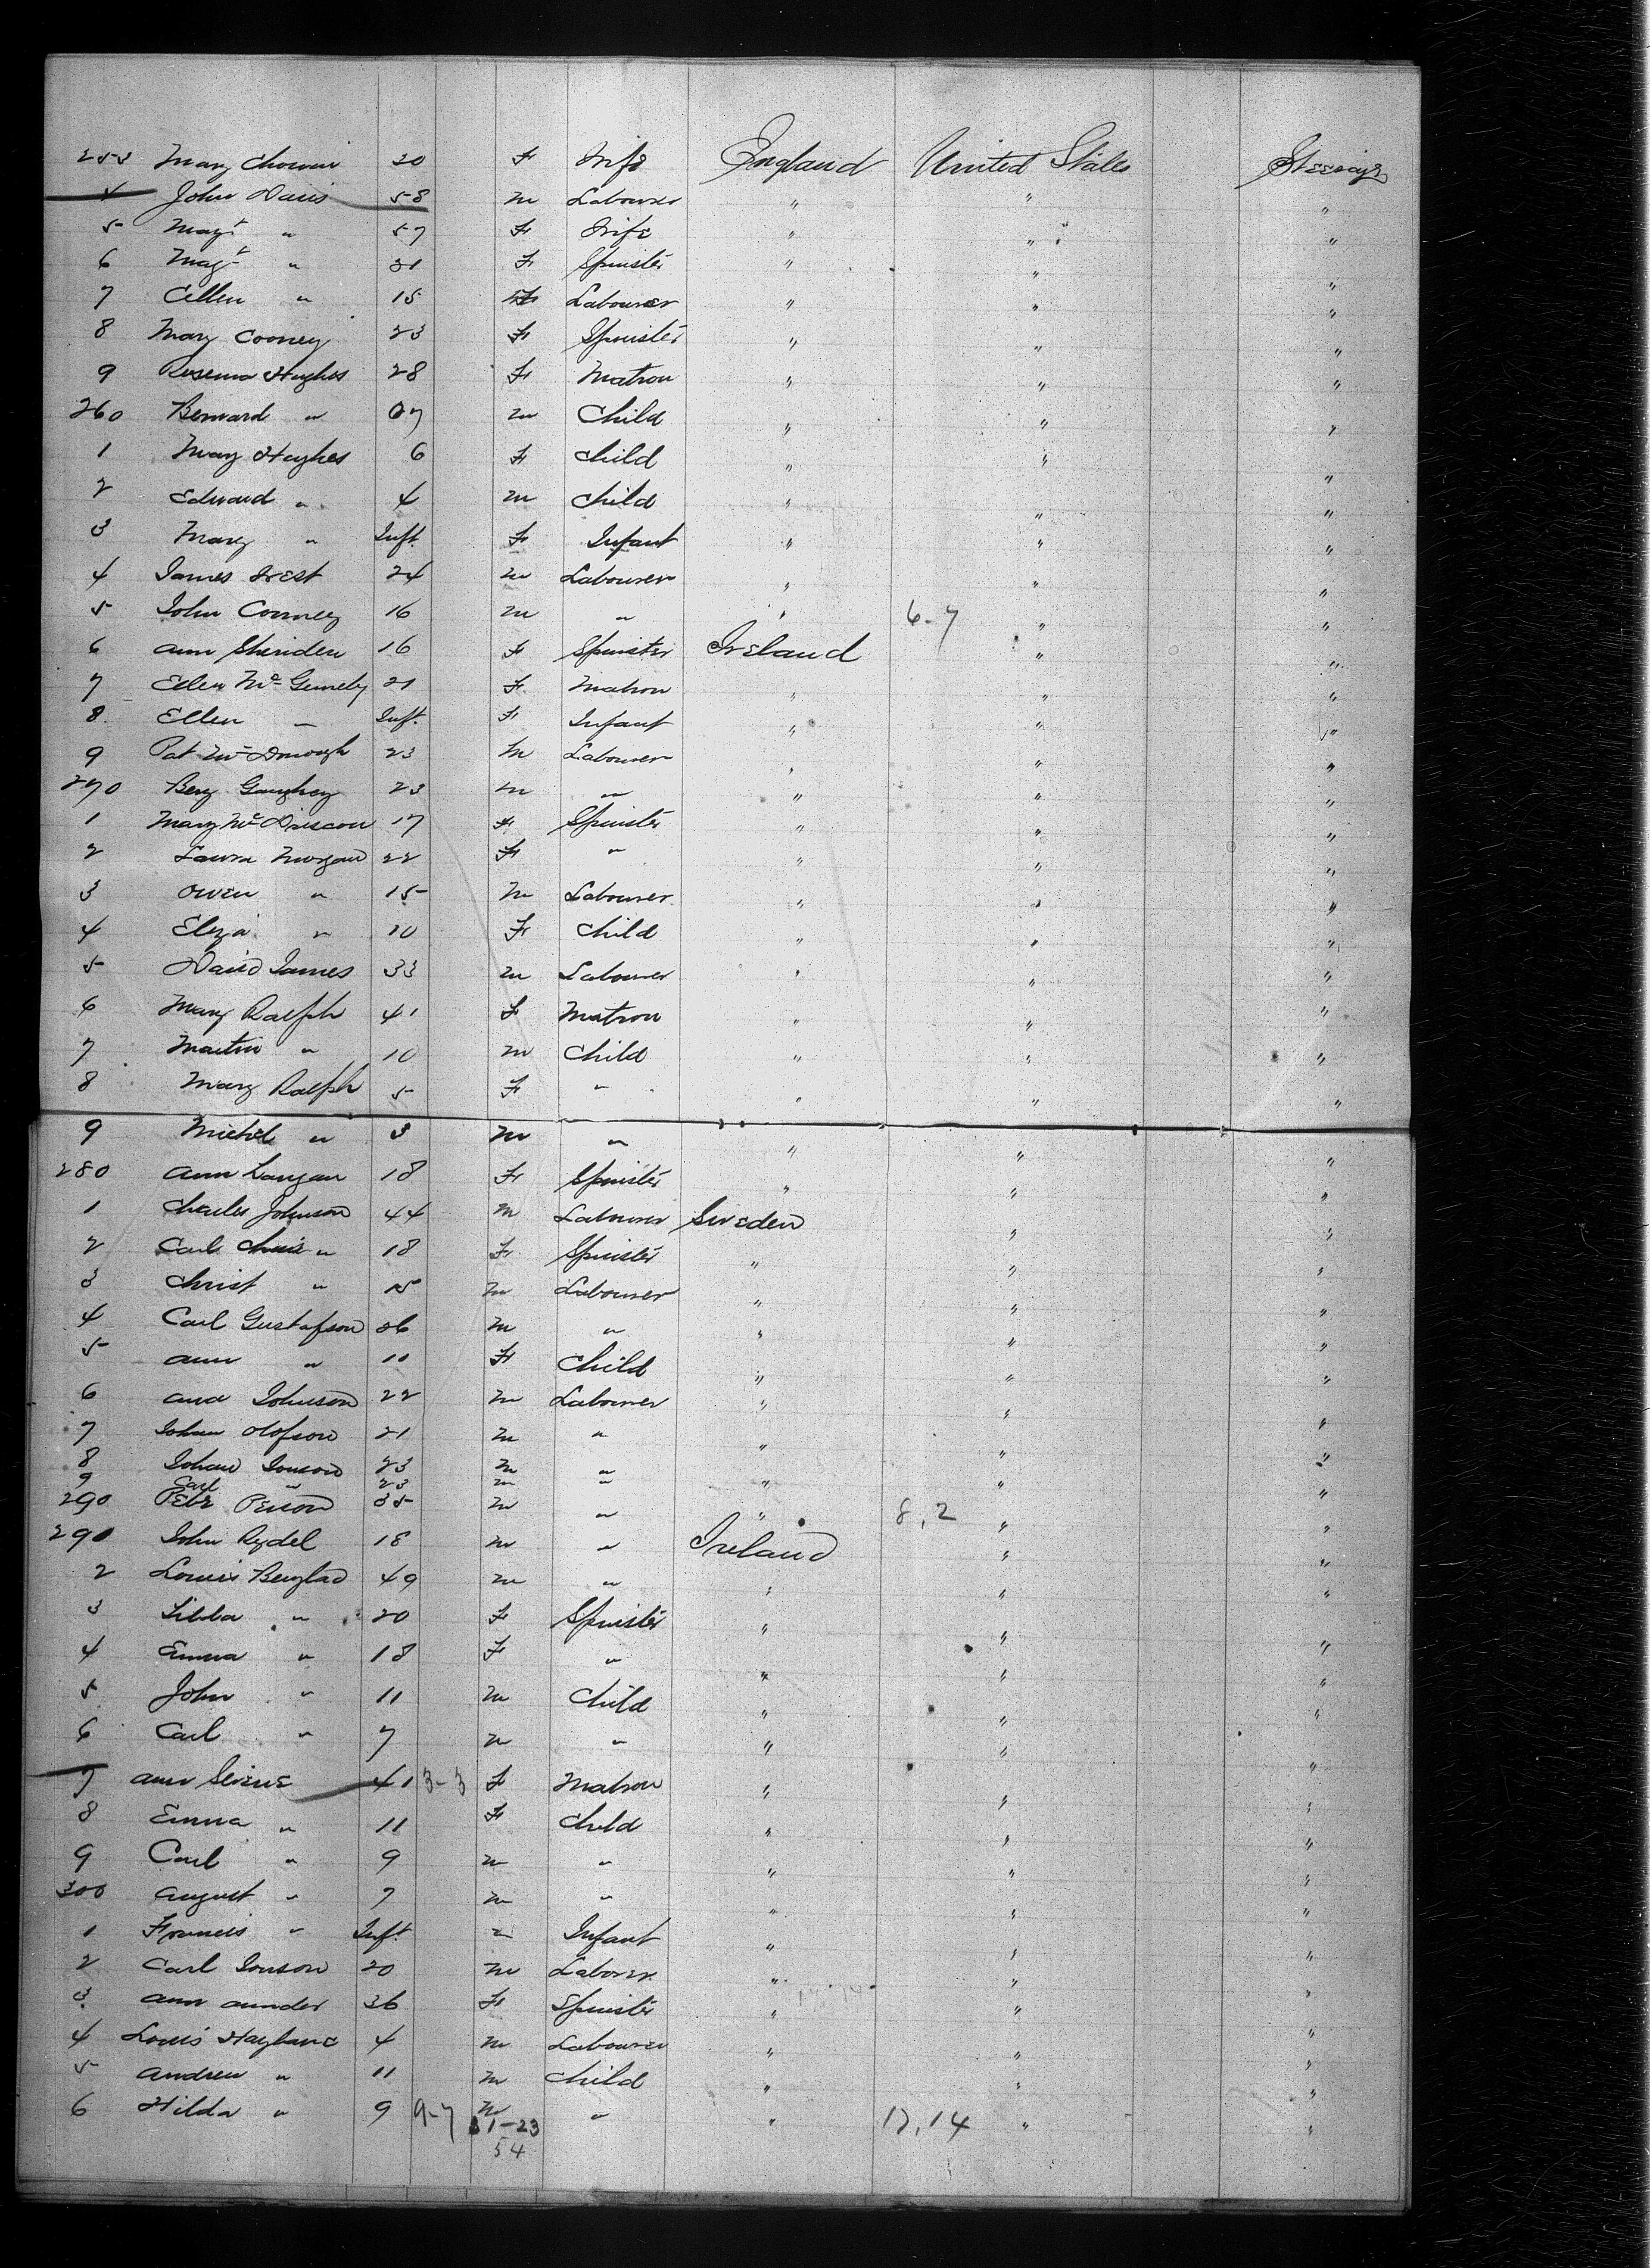 253 Mary 20 F Wife England United States Steerage
4 John Davis 58 m Labourer " " "
5 Mag.t " 57 F Wife " " "
6 Mag.t " 21 F Spinster " " "
7 Ellen " 15 F Labourer " " "
8 Mary Cooney 23 F Spinster " " "
9 Hughes 28 F Matron " " "
260 Bernard " 7 m Child " " "
1 Mary Hughes 6 F Child " " "
2 Edward " 4 m Child " " "
3 Mary " Inft. F Infant " " "
4 James West 24 m Labourer " " "
5 John 16 m " " 6-7 " "
6 Ann Sheriden 16 F Spinster Ireland " "
7 Ellen 21 F Matron " " "
8 Ellen " Inft. F Infant " " "
9 Pat 23 m Labourer " " "
270 Gaughey 23 m " " " "
1 Mary 17 F Spinster " " "
2 Laura Morgan 22 F " " " "
3 Owen " 15 m Labourer " " "
4 Eliza " 10 F Child " " "
5 David James 33 m Labourer " " "
6 Mary Ralph 41 F Matron " " "
7 Martin " 10 m Child " " "
8 Mary Ralph 5 F " " " "
9 Michel " 3 m " " " "
280 Ann Langan 18 F Spinster " " "
1 Charles Johnson 44 m Labourer Sweden " "
2 Carl " 18 F Spinster " " "
3 Christ " 15 m Labourer " " "
4 Carl Gustafson 36 m " " " "
5 Ann " 11 F Child " " "
6 Johnson 22 m Labourer " " "
7 Johan Olofson 21 m " " " "
8 Johan Jonson 23 m " " " "
9 Carl " 23 m "
290 35 m " " 8,2 " "
290 John Rydel 18 m " Ireland " "
2 Louis 49 m " " " "
3 " 20 F Spinster " " "
4 Emma " 18 F " " " "
5 John " 11 m Child " " "
6 Carl " 7 m " " " "
7 Ann 41 3-3 F Matron " " "
8 Emma " 11 F Child " " "
9 Carl " 9 m " " " "
300 August " 7 m " " " "
1 Francis " Inft. " Infant " " "
2 Carl Jonson 20 m Laborer " " "
3 Ann 36 F Spinster " " "
4 Louis 4 m Labourer " " "
5 Andrew " 11 m Child " " "
6 Hilda " 9 9-7 m " " 17,14 " "
31-23
54